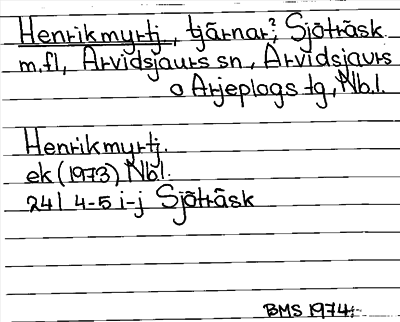 Henrikmyrtj, tjärnar? Sjöträsk
m.fl, Arvidsjaurs sn, Arvidsjaurs
o Arjeplogs tg, Nb.l.
Henrikmyrtj.
ek (1973) Nbl.
24I 4-5 i-j Sjöträsk
BMS 1974